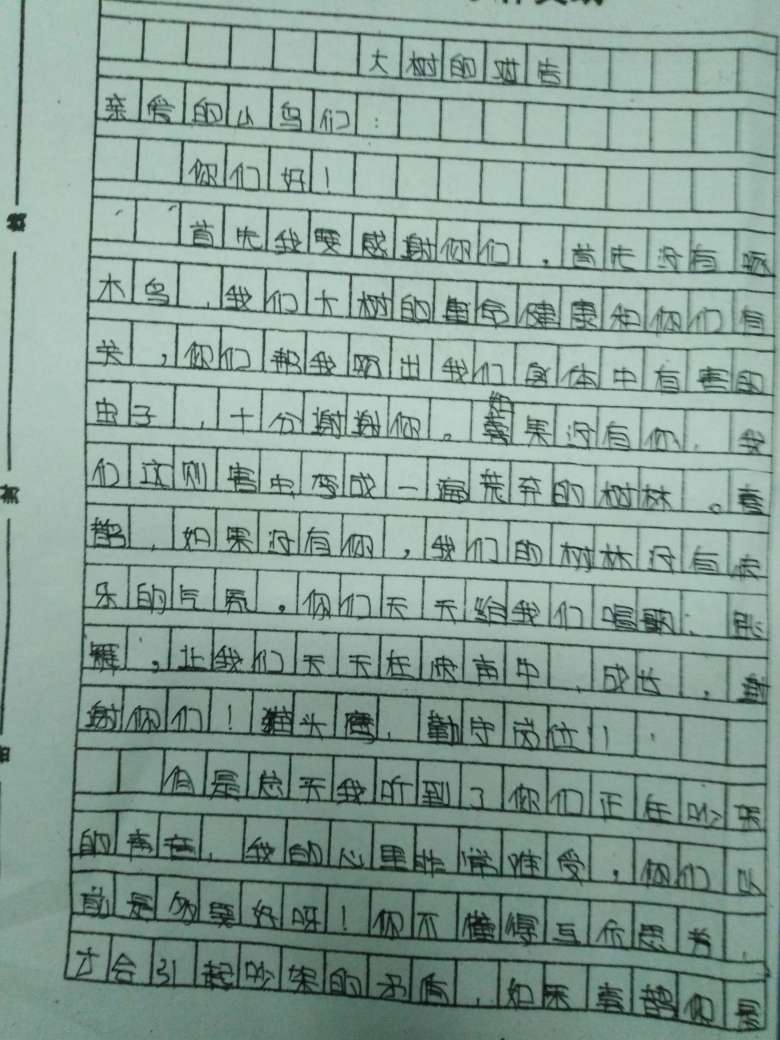 大树的对告
亲爱的小鸟们：
你们好！
首先我要感谢你们，首先没有啄
木鸟，我们大树的生命健康和你们有
关，你们帮我啄出我们身体中有害的
虫子，十分谢谢你。如果没有你，我
们这则害虫变成一遍荒弃的树林。喜
鹊，如果没有你，我们的树林没有快
乐的气氛。你们天天给我们唱歌、跳
舞，让我们天天在快声中，成长，谢
谢你们！猫头鹰，勤守岗位！
但是总天我听到了你们正在吵架
的声音，我的心里非常难受，你们以
前是多要好呀！你不懂得互介思考，
才会引起吵架的矛盾，如果喜鹊你是